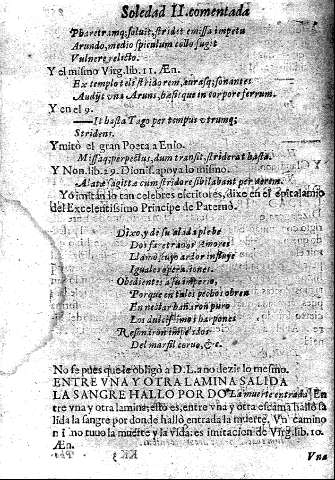 Soledad II. comentada
Pharetramq; soluit, stridet emissa impetu
Arundo, medio spiculum collo fugit
Vulnere relicto.
Y el mismo Virg. lib. 11. Æn.
Extemplo teli stridorem, aurasq; sonantes
Audijt vna Aruns, hæsitque in corpore ferrum.
Y en el 9.
It hasta Tago per tempus vtrumq;
Stridens.
Ymitò el gran Poeta a Enio.
Missaq; perpectus, dum transit, striderat hasta.
Y Non. lib. 29. Dionis. apoya lo mismo.
Alatæ sagittæ cum stridore sibilabant per aerem.
Yo imitando tan celebres escritores, dixe en el epitalamio
del Excelentissimo Principe de Paternò.
Dixo, y de su alada plebe
Dos
Amores
ardor influye
Iguales
Obedientes a su imperio,
Porque en tales pechos obren
En nectar bañaron puro
Los dulcissimos harpones
Del marfil corvo, &c.
No se pues que le obligò a D. L. a no dezir lo mesmo.
ENTRE VNA Y OTRA LAMINA SALIDA
LA SANGRE HALLO POR DO La muerte entrada] En
tre vna y otra lamina; esto es, entre vna y otra escama hallò sa
lida la sangre por donde hallò entrada la muerte. Vn camino
tuuo la muerte y la vida: es imitacion de Virg. lib. 10.
Æn.
Vna